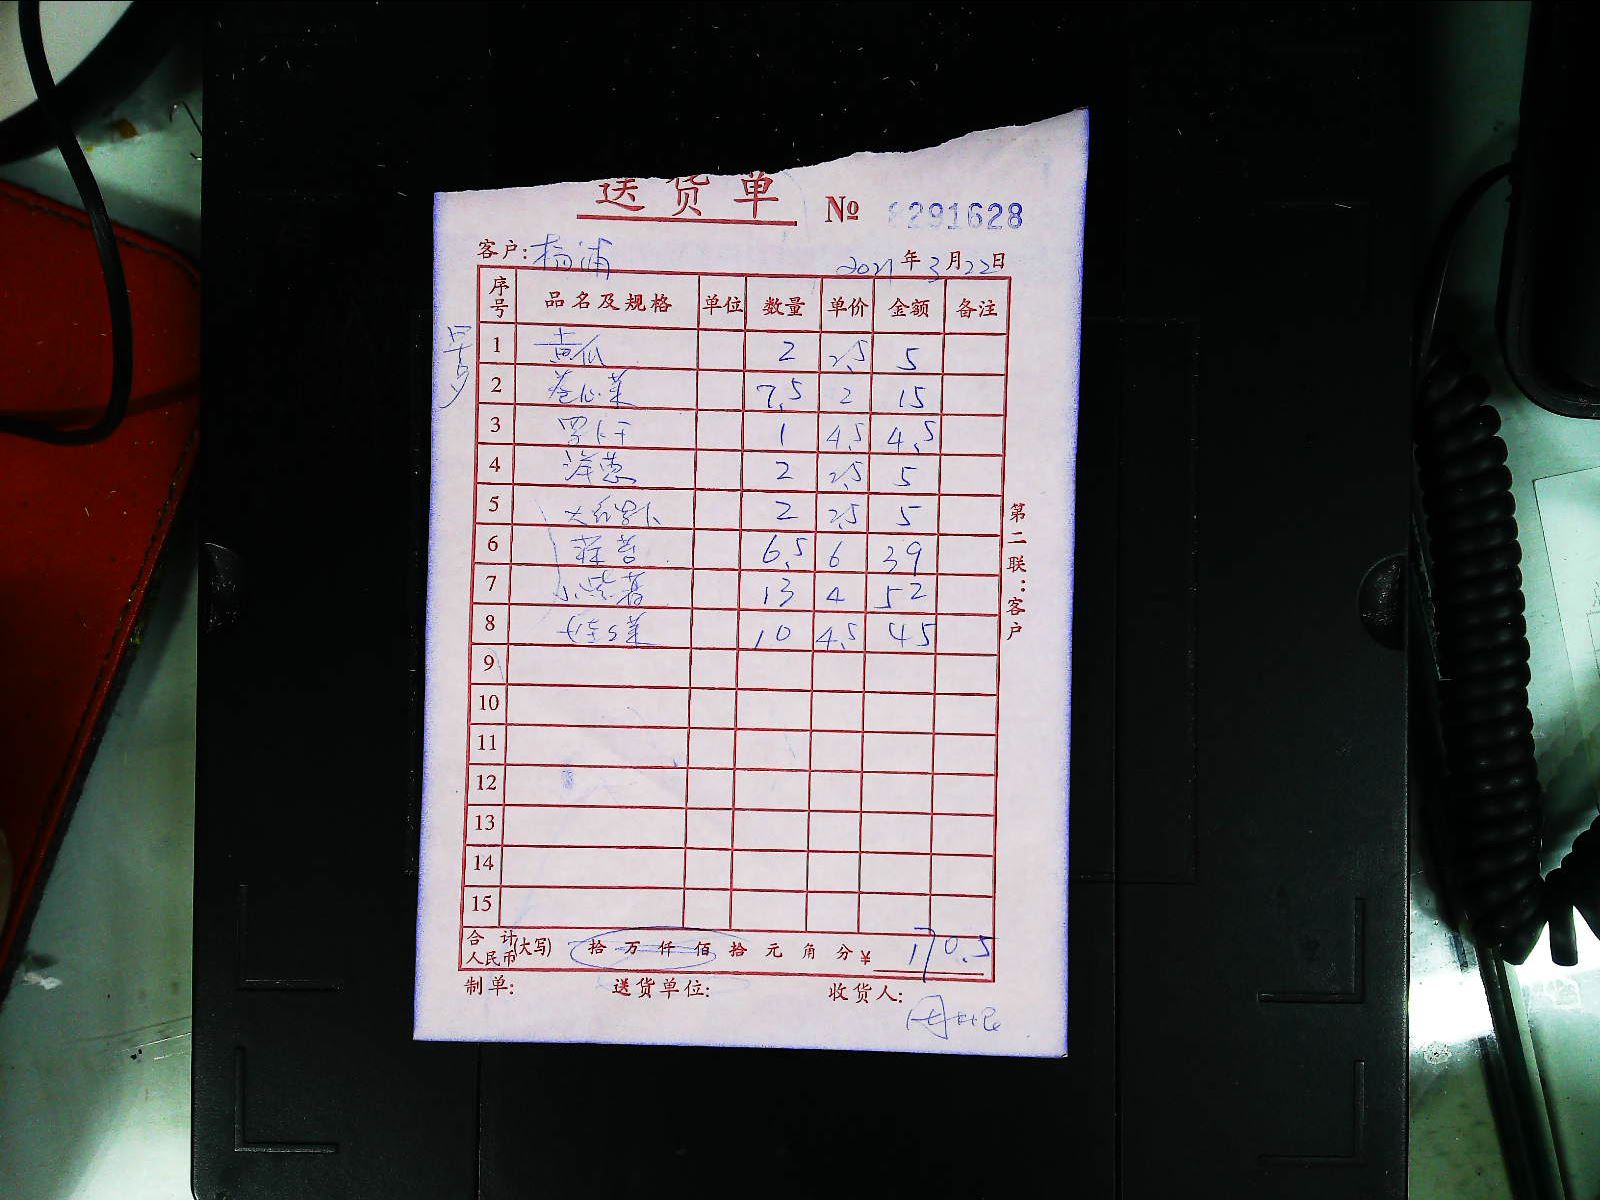 送货单 № 8291628
客户: 杨浦 2021年3月22日
序号 品名及规格 单位 数量 单价 金额 备注
1 黄瓜 2 2.5 5
2 卷心菜 7.5 2 15
3 罗卜干 1 4.5 4.5
4 洋葱 2 2.5 5
5 大红罗卜 2 2.5 5
6 6.5 6 39
7 13 4 52
8 10 4.5 45
9
10
11
12
13
14
15
合计人民币(大写) 拾万仟佰拾元角分 ¥ 170.5
制单: 送货单位: 收货人:
第二联:客户